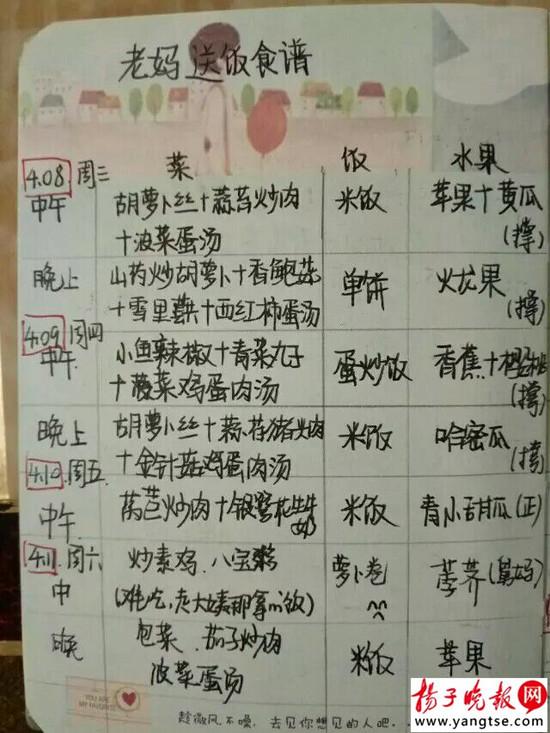 老妈送饭食谱
菜 饭 水果
4.08 周三
中午 胡萝卜丝+蒜苔炒肉 米饭 苹果+黄瓜
+波菜蛋汤 (撑)
晚上 山药炒胡萝卜+香鲍菇 单饼 火龙果
+雪里蕻+西红柿蛋汤 (撑)
4.09 周四
中午 小鱼辣椒+青菜丸子 蛋炒饭 香蕉+
+菠菜鸡蛋肉汤 (撑)
晚上 胡萝卜丝+蒜苔猪头肉 米饭 哈密瓜
+金针菇鸡蛋肉汤 (撑)
4.10 周五
中午 莴苣炒肉+银鹭花生牛奶 米饭 青小甜瓜(正)
4.11 周六
中 炒素鸡、八宝粥 萝卜卷 荸荠(舅妈)
(难吃,老大姨那拿的饭)
晚 包菜、茄子炒肉 米饭 苹果
波菜蛋汤
趁微风不噪,去见你想见的人吧...
扬子晚报网
www.yangtse.com